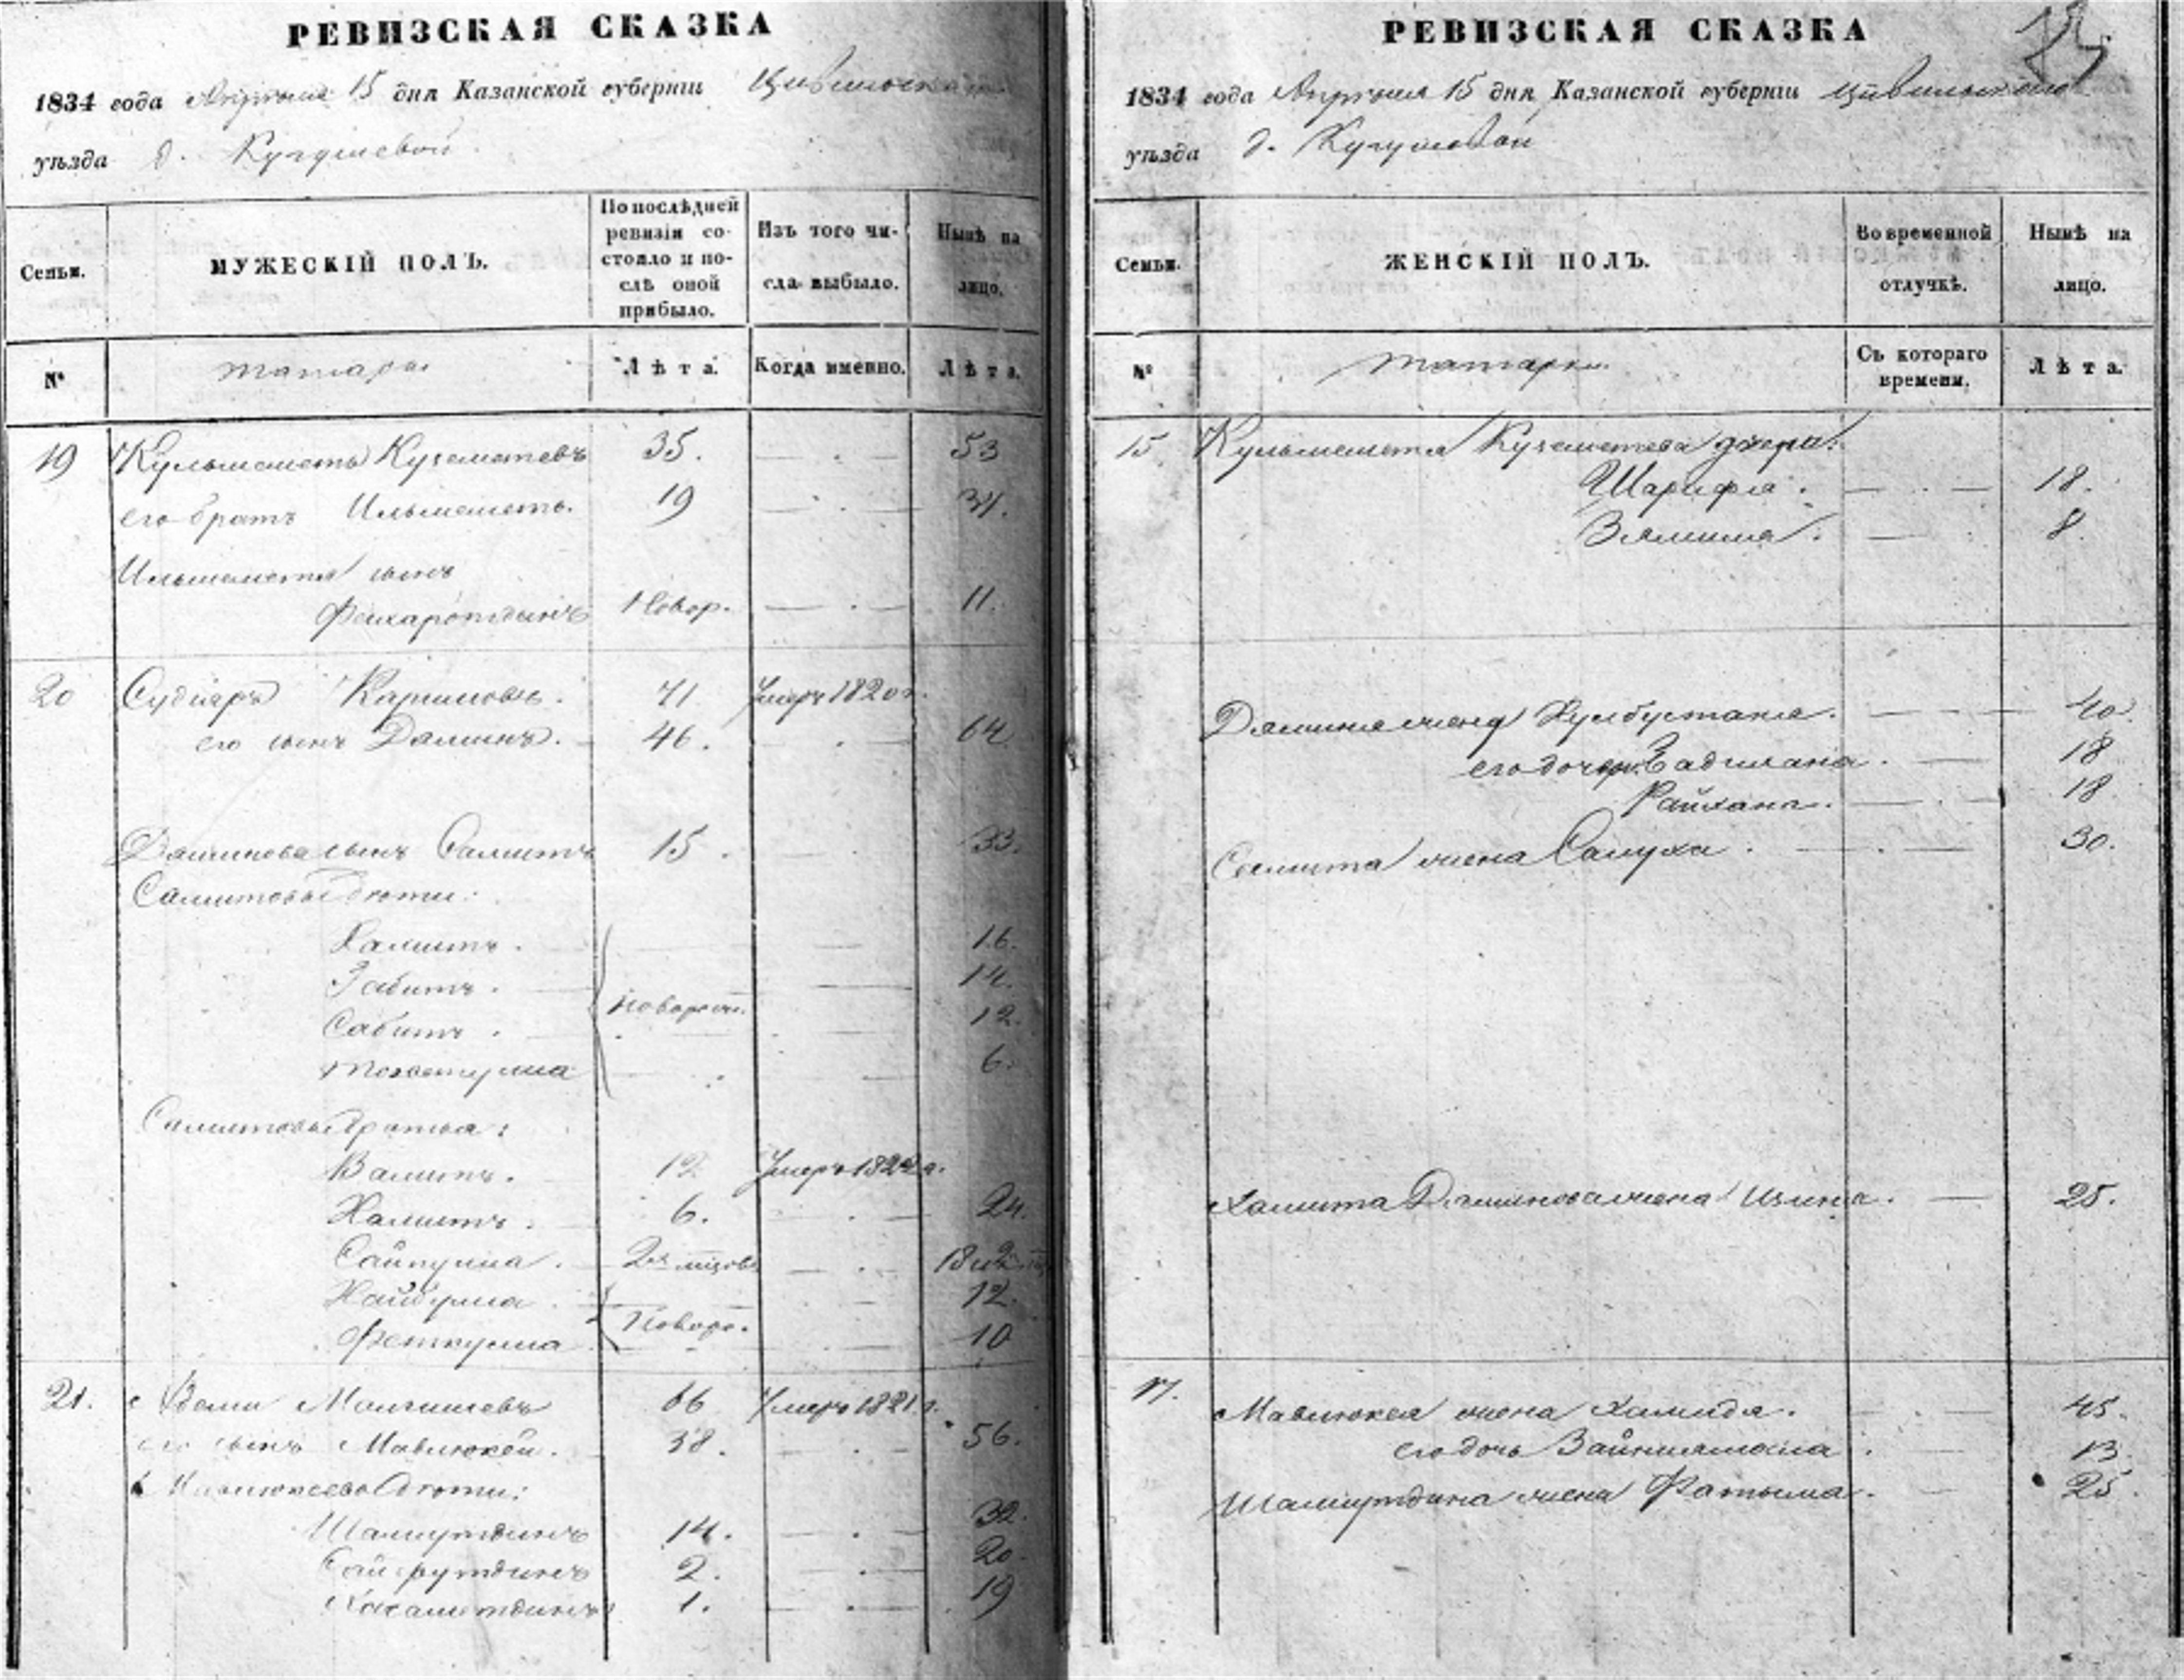 РЕВИЗСКАЯ СКАЗКА
1834 года Апреля 15 дня Казанской губернии Цивильскаго
уѣзда д. Кугушевой
Семьи.
МУЖЕСКІЙ ПОЛЪ.
По послѣдней ревизіи состояло и послѣ оной прибыло.
Изъ того числа выбыло.
Нынѣ на лицо.
№
татары.
Лѣта.
Когда именно.
Лѣта.
19 Кульмаметь Куземетевъ 35. 53
его братъ Ильмеметь. 19
Ильмаметя сынъ
Новор. 11.
20 Каримовъ. 71 Умеръ 1820 г.
его сынъ Даминъ. 46. 64
Даминова сынъ Самитъ 15. 33.
Самитовы дѣти:
Хамитъ. 16.
Габитъ. 14.
новорож.
Сабитъ. 12.
6.
Самитовы братья:
Валитъ. 12 Умеръ
Хамитъ. 6. 24.
Сайпулла.
Хайбулла. 12.
Новоро.
Феткулла 10
21. Вели 66 Умеръ 1821 г.
его сынъ Мавлюкей. 38. 56.
Мавлюкеевы дѣти:
Шамутдинъ 14. 32.
Сайфутдинъ 2. 20.
1. 19
РЕВИЗСКАЯ СКАЗКА
1834 года Апреля 15 дня Казанской губерніи Цивильскаго
уѣзда д. Кугушевой
Семьи.
ЖЕНСКІЙ ПОЛЪ.
Во временной отлучкѣ.
Нынѣ на лицо.
№
татарки.
Съ котораго времени.
Лѣта.
15 Кульмаметя Куземетева дочери:
Шарифа. 18.
8.
Дамина жена 40.
его дочери 18
Райхана. 18.
Самита жена Салуха. 30.
Хамита Даминова жена 25.
17. Мавлюкея жена Хамидя. 45.
его дочь 13
Шамутдина жена Фатыма. 25